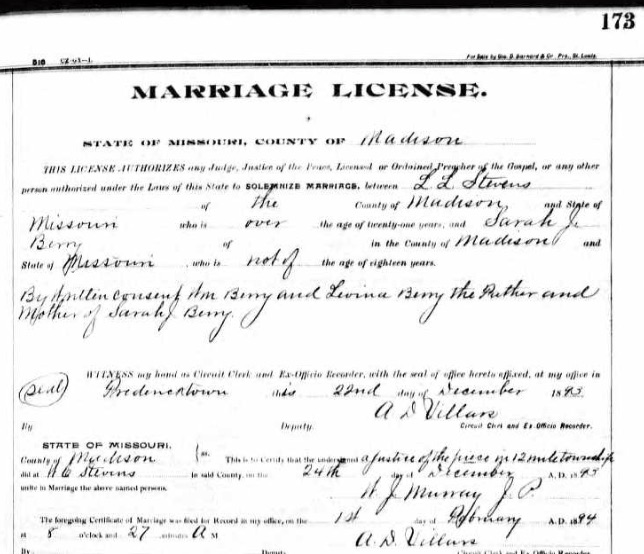 173
516 For Sale by Geo. D. Barnard & Co. Pro., St. Louis.
MARRIAGE LICENSE.
STATE OF MISSOURI, COUNTY OF Madison
THIS LICENSE AUTHORIZES any Judge, Justice of the Peace, Licensed or Ordained Preacher of the Gospel, or any other
person authorized under the Laws of this State to SOLEMNIZE MARRIAGE, between L L Stevens
of the County of Madison and State of
Missouri who is over the age of twenty-one years, and Sarah J.
Berry of in the County of Madison and
State of Missouri who is not of the age of eighteen years.
By Written consent Wm Berry and Levina Berry the Father and
Mother of Sarah J Berry.
WITNESS my hand as Circuit Clerk and Ex-Officio Recorder, with the seal of office hereto affixed, at my office in
(Seal) Fredericktown this 22nd day of December 1893
A D Villars
By Deputy. Circuit Clerk and Ex-Officio Recorder.
STATE OF MISSOURI,
County of Madison ss. This is to Certify that the undersigned a justice of the piece in 12 mile township
did at Stevens in said County on the 24th day of December A.D. 1893
unite in Marriage the above named persons.
W J Murray J. P.
The foregoing Certificate of Marriage was filed for Record in my office, on the 1st day of February A.D. 1894
at 8 o'clock and 27 minutes A M
A. D. Villars
By Deputy. Circuit Clerk and Ex-Officio Recorder